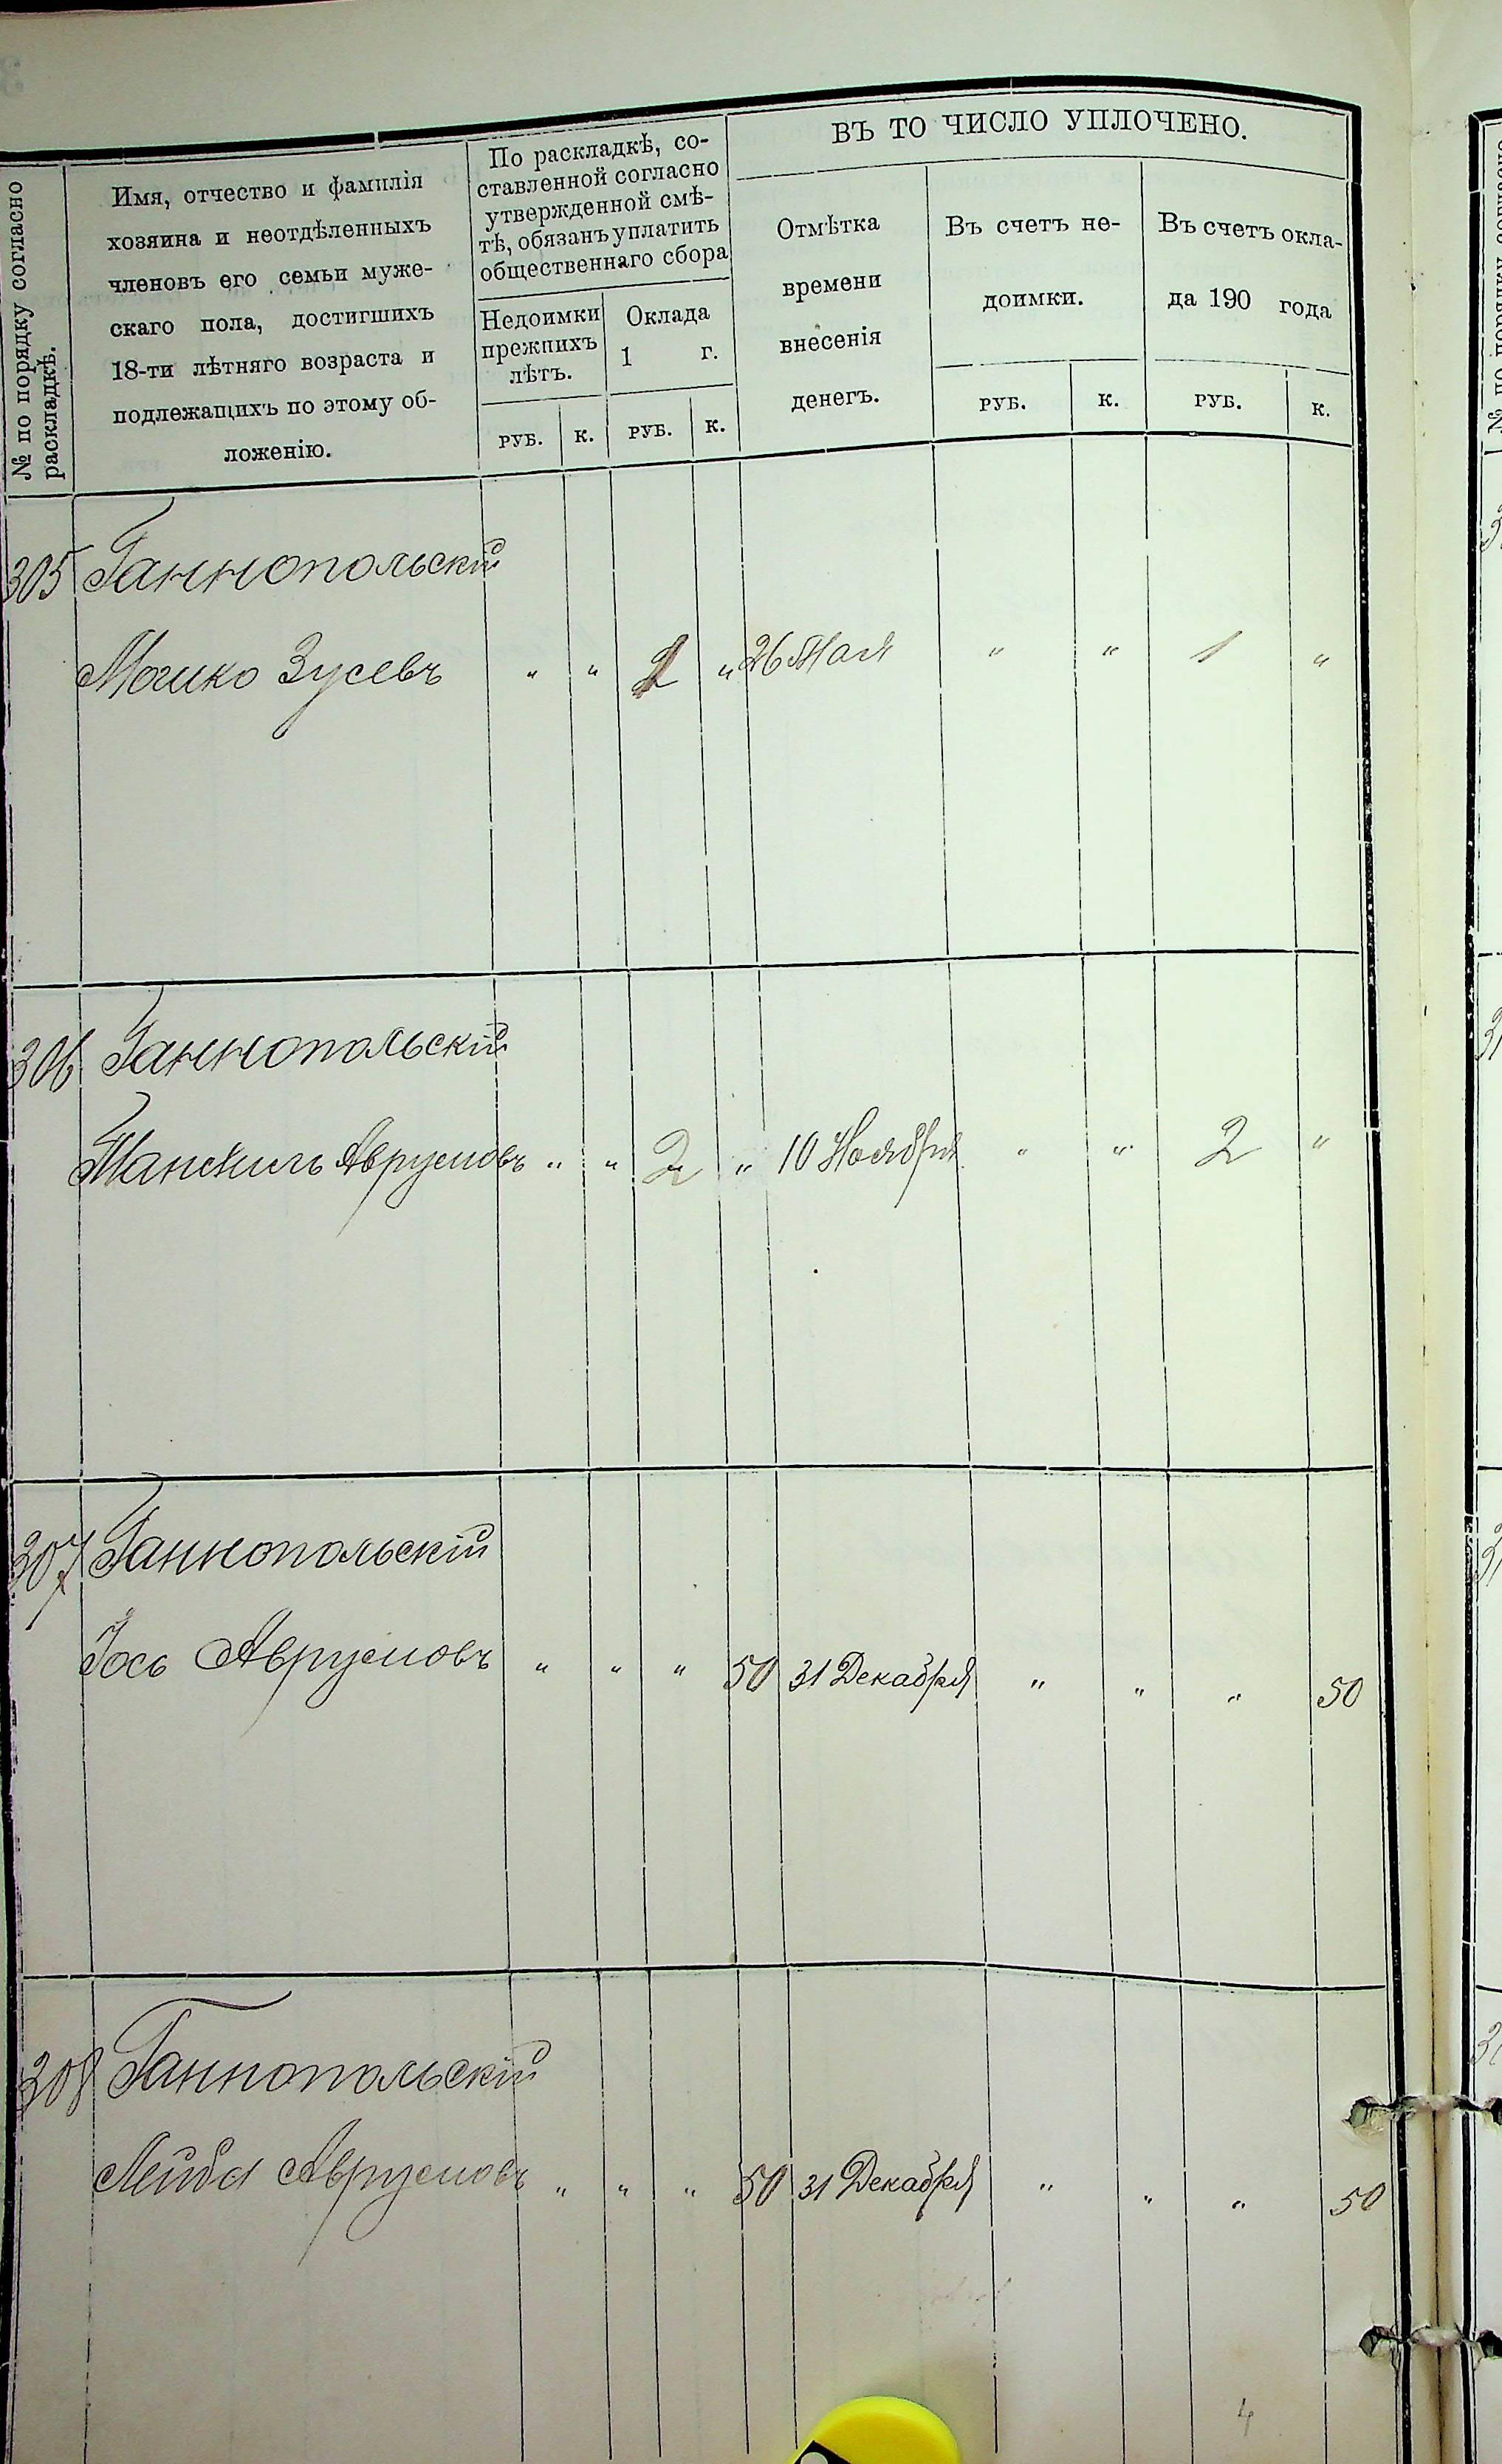 № по порядку согласно
раскладкѣ.
Имя, отчество и фамилія
хозяина и неотдѣленныхъ
членовъ его семьи муже-
скаго пола, достигшихъ
18-ти лѣтняго возраста и
подлежащихъ по этому об-
ложенію.
По раскладкѣ, со-
ставленной согласно
утвержденной смѣ-
тѣ, обязанъ уплатить
общественнаго сбора
Недоимки
прежнихъ
лѣтъ.
Оклада
1 г.
РУБ. К. РУБ. К.
ВЪ ТО ЧИСЛО УПЛОЧЕНО.
Отмѣтка
времени
внесенія
денегъ.
Въ счетъ не-
доимки.
РУБ. К.
Въ счетъ окла-
да 190 года
РУБ. К.
305 Ганнопольскій
Мошко Зусевъ " " " 26 Мая " " 1 "
306 Ганнопольскій
Аврумовъ " " 2 " 10 Ноября " " 2 "
307 Ганнопольскій
Іось Аврумовъ " " " 50 31 Декабря " " " 50
308 Ганнопольскій
Лейба Аврумовъ " " " 50 31 Декабря " " " 50
4